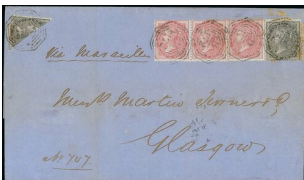 via Marseilles
Mess^rs Martin Turner & Co
Glasgow
No 707